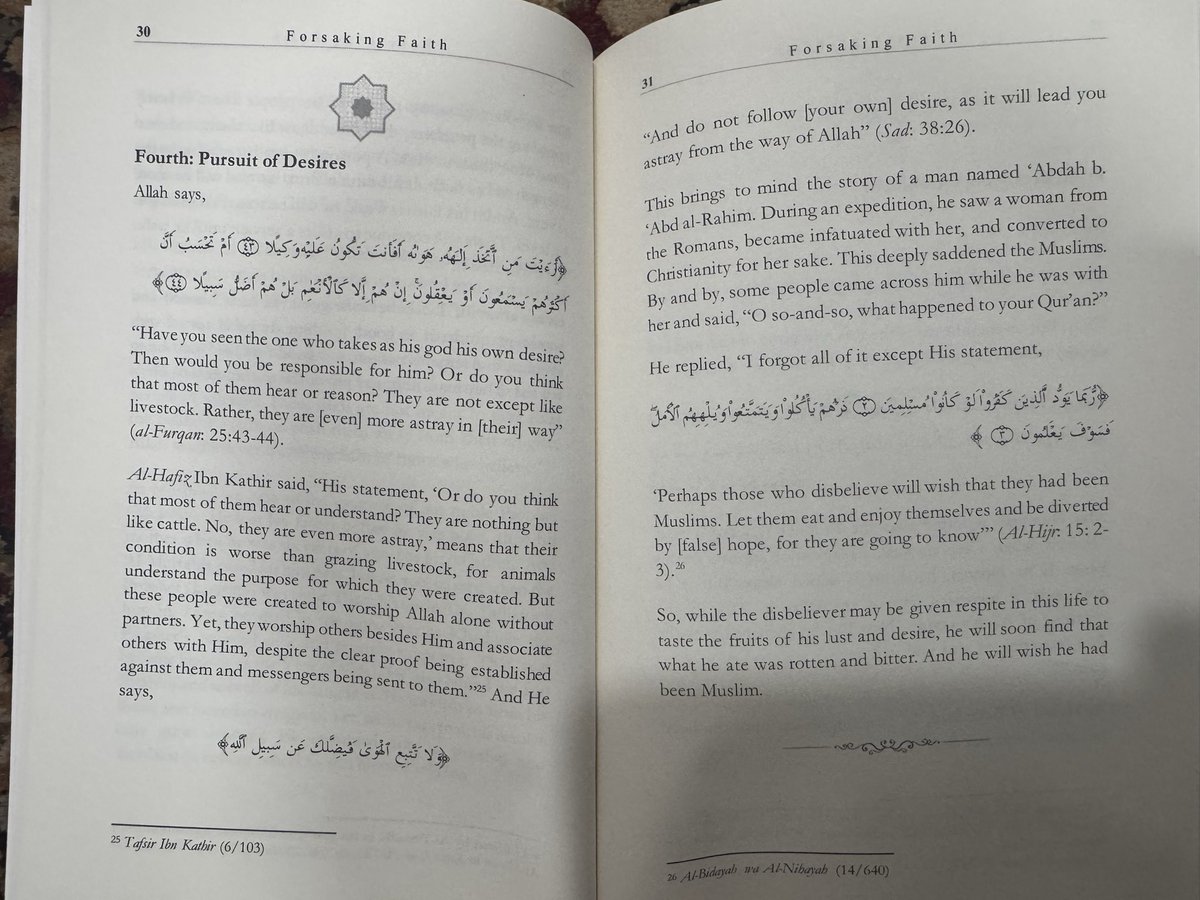 30
Forsaking Faith
Fourth: Pursuit of Desires
Allah says,
﴿أَرَءَيْتَ مَنِ ٱتَّخَذَ إِلَٰهَهُۥ هَوَىٰهُ أَفَأَنتَ تَكُونُ عَلَيْهِ وَكِيلًا ٤٣ أَمْ تَحْسَبُ أَنَّ
أَكْثَرَهُمْ يَسْمَعُونَ أَوْ يَعْقِلُونَۚ إِنْ هُمْ إِلَّا كَٱلْأَنْعَٰمِ بَلْ هُمْ أَضَلُّ سَبِيلًا ٤٤﴾
“Have you seen the one who takes as his god his own desire?
Then would you be responsible for him? Or do you think
that most of them hear or reason? They are not except like
livestock. Rather, they are [even] more astray in [their] way”
(al-Furqan: 25:43-44).
Al-Hafiẓ Ibn Kathir said, “His statement, ‘Or do you think
that most of them hear or understand? They are nothing but
like cattle. No, they are even more astray,’ means that their
condition is worse than grazing livestock, for animals
understand the purpose for which they were created. But
these people were created to worship Allah alone without
partners. Yet, they worship others besides Him and associate
others with Him, despite the clear proof being established
against them and messengers being sent to them.”25 And He
says,
﴿وَلَا تَتَّبِعِ ٱلْهَوَىٰ فَيُضِلَّكَ عَن سَبِيلِ ٱللَّهِ﴾
25 Tafsir Ibn Kathir (6/103)
Forsaking Faith
31
“And do not follow [your own] desire, as it will lead you
astray from the way of Allah” (Sad: 38:26).
This brings to mind the story of a man named ‘Abdah b.
‘Abd al-Rahim. During an expedition, he saw a woman from
the Romans, became infatuated with her, and converted to
Christianity for her sake. This deeply saddened the Muslims.
By and by, some people came across him while he was with
her and said, “O so-and-so, what happened to your Qur’an?”
He replied, “I forgot all of it except His statement,
﴿رُّبَمَا يَوَدُّ ٱلَّذِينَ كَفَرُوا۟ لَوْ كَانُوا۟ مُسْلِمِينَ ٢ ذَرْهُمْ يَأْكُلُوا۟ وَيَتَمَتَّعُوا۟ وَيُلْهِهِمُ ٱلْأَمَلُۖ
فَسَوْفَ يَعْلَمُونَ ٣﴾
‘Perhaps those who disbelieve will wish that they had been
Muslims. Let them eat and enjoy themselves and be diverted
by [false] hope, for they are going to know’” (Al-Hijr: 15: 2-
3).26
So, while the disbeliever may be given respite in this life to
taste the fruits of his lust and desire, he will soon find that
what he ate was rotten and bitter. And he will wish he had
been Muslim.
26 Al-Bidayah wa Al-Nihayah (14/640)